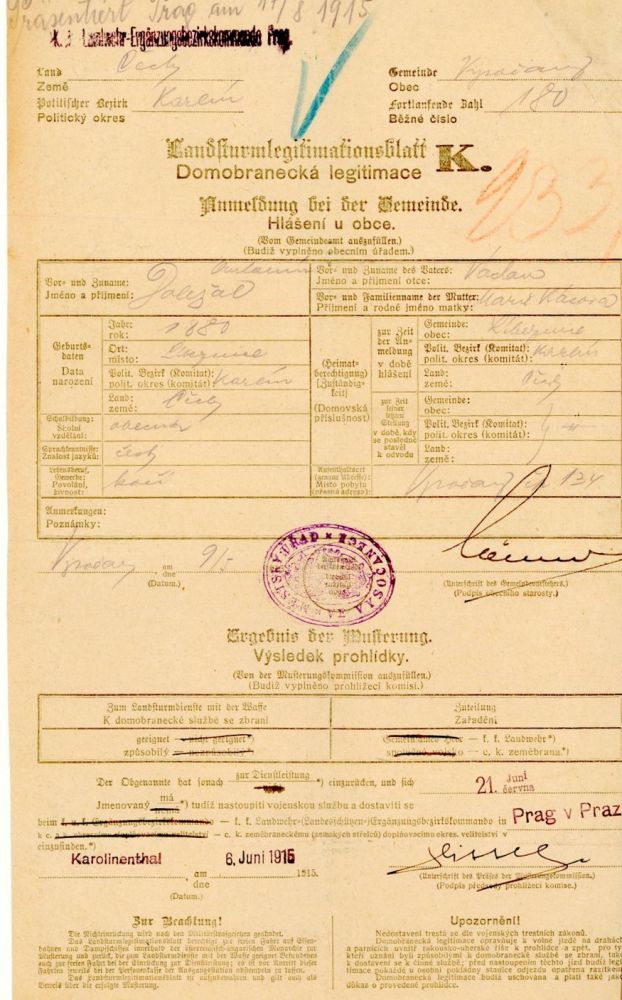 Präsentiert Prag am 17/8 1915
k. k. Landwehr-Ergänzungsbezirkskommando Prag.
Land Čechy
Země
Politischer Bezirk Karlín
Politický okres
Gemeinde Vysočany
Obec
Fortlaufende Zahl 180
Běžné číslo
Landsturmlegitimationsblatt K.
Domobranecká legitimace
233
Anmeldung bei der Gemeinde.
Hlášení u obce.
(Vom Gemeindeamt auszufüllen.)
(Budiž vyplněno obecním úřadem.)
Vor- und Zuname: Antonín
Jméno a příjmení: Doležal
Vor- und Zuname des Vaters: Václav
Jméno a příjmení otce:
Vor- und Familienname der Mutter: Marie
Příjmení a rodné jméno matky:
Geburts-
daten
Data
narození
Jahr: 1880
rok:
Ort:
místo:
Polit. Bezirk (Komitat): Karlín
polit. okres (komitát)
Land: Čechy
země:
(Heimat-
berechtigung)
[Zuständig-
keit]
(Domovská
příslušnost)
zur Zeit
der An-
meldung
v době
hlášení
Gemeinde:
obec:
Polit. Bezirk (Komitat): Karlín
polit. okres (komitát)
Land: Čechy
země:
zur Zeit
seiner
letzten
Stellung
v době, kdy
se posledně
stavěl
k odvodu
Gemeinde:
obec:
Polit. Bezirk (Komitat):
polit. okres (komitát)
Land:
země:
Schulbildung: obecná
Školní
vzdělání:
Sprachkenntnisse: česky
Znalost jazyků:
Lebensberuf,
Gewerbe:
Povolání,
živnost:
Aufenthaltsort
(genaue Adresse):
Místo pobytu
(přesná adresa):
Vysočany čp 134
Anmerkungen:
Poznámky:
Vysočany am 9/5
dne
(Datum.)
(Unterschrift des Gemeindevorstehers.)
(Podpis obecního starosty.)
Ergebnis der Musterung.
Výsledek prohlídky.
(Von der Musterungskommission auszufüllen.)
(Budiž vyplněno prohlížecí komisí.)
Zum Landsturmdienste mit der Waffe
K domobranecké službě se zbraní
Zuteilung
Zařadění
geeignet — nicht geeignet*)
způsobilý — nezpůsobilý*)
Gemeinsames Heer — k. k. Landwehr*)
společné vojsko — c. k. zeměbrana*)
Der Obgenannte hat sonach zur Dienstleistung *) einzurücken, und sich 21. Juni
června
Jmenovaný má *) tudíž nastoupiti vojenskou službu a dostaviti se
nemá
beim k. u. k. Ergänzungsbezirkskommando — k. k. Landwehr-(Landesschützen-)Ergänzungsbezirkskommando in Prag v Praz
k c. a k. okresního doplňovacího velitelství — c. k. zeměbraneckému (zemských střelců) doplňovacímu okres. velitelství v
einzufinden.*)
Karolinenthal am 6. Juni 1915 1915.
dne
(Datum.)
(Unterschrift des Präses der Musterungskommission.)
(Podpis předsedy prohlížecí komise.)
Zur Beachtung!
Die Nichteinrückung wird nach den Militärstrafgesetzen geahndet.
Das Landsturmlegitimationsblatt berechtigt zur freien Fahrt auf Eisen-
bahnen und Dampfschiffen innerhalb der österreichisch-ungarischen Monarchie zur
Musterung und zurück, die zum Landsturmdienste mit der Waffe geeignet Befundenen
auch zur freien Fahrt bei der Einrückung zur Dienstleistung; es ist vor Antritt dieser
Fahrten jeweils bei der Personenkasse der Ausgangsstation abstempeln zu lassen.
Das Landsturmlegitimationsblatt ist sorgsam aufzubewahren und gilt auch als
Beweis über die erfolgte Musterung.
Upozornění!
Nedostavení trestá se dle vojenských trestních zákonů.
Domobranecká legitimace opravňuje k volné jízdě na drahách
a parnících uvnitř rakousko-uherské říše k prohlídce a zpět, pro ty
kteří uznáni byli způsobilými k domobranecké službě se zbraní, také
k dostavení se k činné službě; před nastoupením těchto jízd budiž legi-
timace pokaždé u osobní pokladny stanice odjezdu opatřena razítkem
Domobranecká legitimace budiž uschována a platí také jako
důkaz o provedené prohlídce.